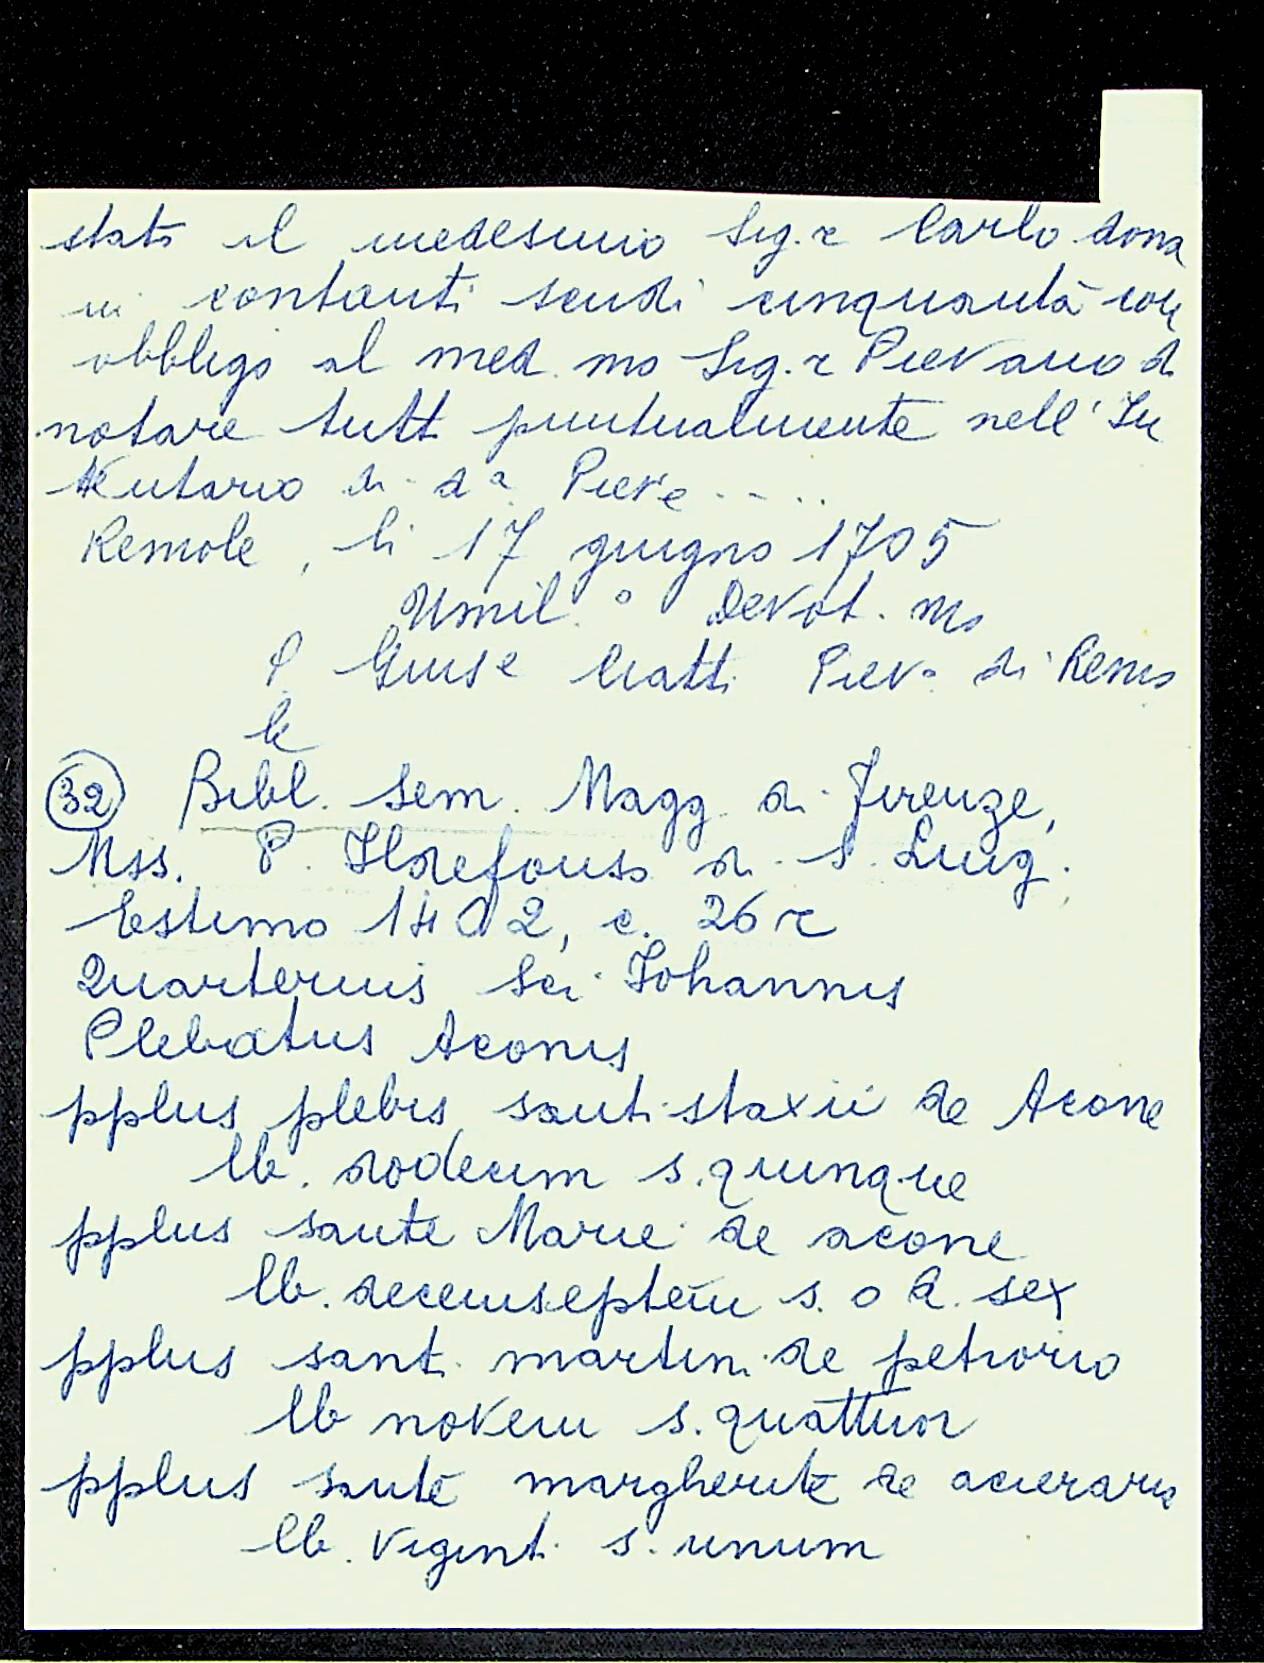 stato il medesimo Sig.r Carlo dona
in contanti scudi cinquanta con
obbligo al med.mo Sig.r Pievano di
notare tutt puntualmente nell'In
ventario di d.a Pieve.....
Remole, li 17 giugno 1705
Umil.o Devot.mo
P Giuse Ciatti Piev.o di Remo
le
(32) Bibl. Sem. Magg. di Firenze,
Mss. P. Ildefonso di S. Luig.
Estimo 1402, c. 26 r
Quarterius Sci Johannis
Plebatus Aconis
pplus plebis santi staxii de Acone
lb. dodecim s. quinque
pplus sante Marie de acone
lb. decemseptem s. o d. sex
pplus santi martini de petrorio
lb novem s. quattuor
pplus sante margherite de acieraria
lb. viginti s. unum